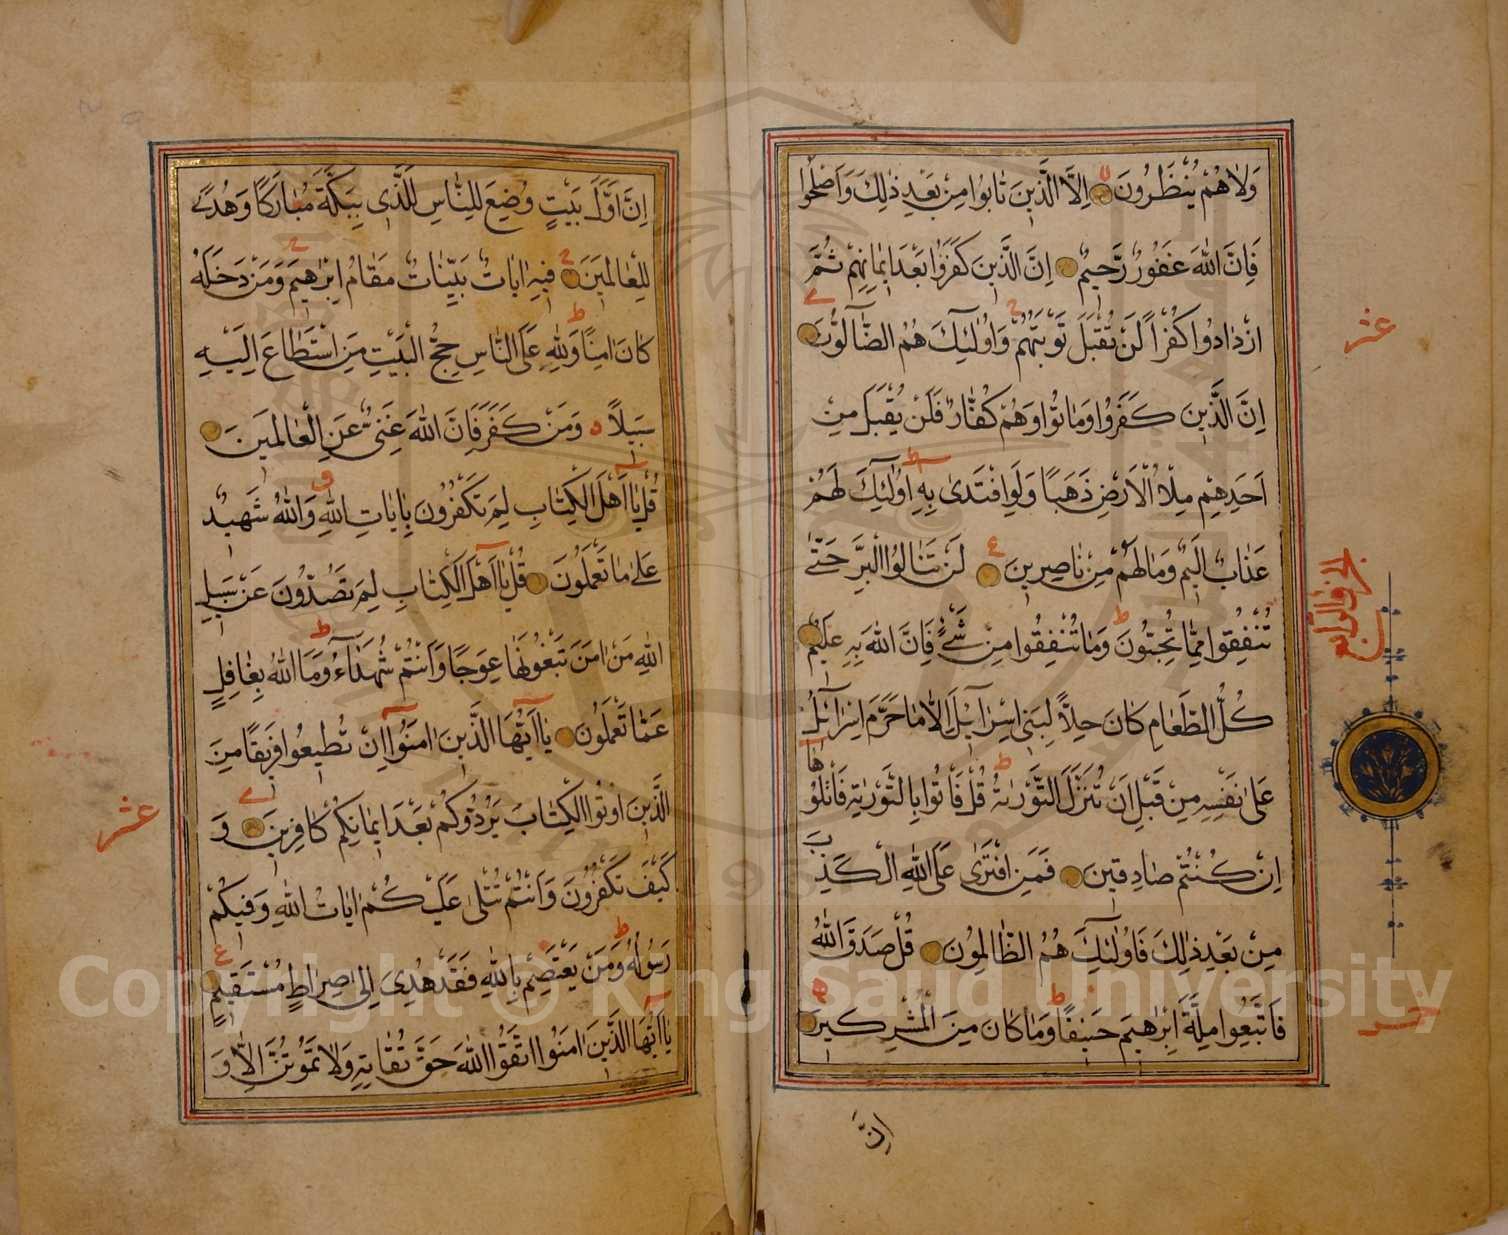 وَلَا هُمْ يُنْظَرُونَ اِلَّا الَّذِينَ تَابُوا مِنْ بَعْدِ ذٰلِكَ وَاَصْلَحُوا
فَاِنَّ اللّٰهَ غَفُورٌ رَّحِيمٌ اِنَّ الَّذِينَ كَفَرُوا بَعْدَ اِيمَانِهِمْ ثُمَّ
ازْدَادُوا كُفْراً لَنْ تُقْبَلَ تَوْبَتُهُمْ وَاُولٰئِكَ هُمُ الضَّآلُّونَ
عشر
اِنَّ الَّذِينَ كَفَرُوا وَمَاتُوا وَهُمْ كُفَّارٌ فَلَنْ يُقْبَلَ مِنْ
اَحَدِهِمْ مِلْأُ الْاَرْضِ ذَهَبًا وَلَوِ افْتَدٰى بِهِ اُولٰئِكَ لَهُمْ
عَذَابٌ اَلِيمٌ وَمَا لَهُمْ مِنْ نَاصِرِينَ لَنْ تَنَالُوا الْبِرَّ حَتّٰى
الجزؤ الرابع
تُنْفِقُوا مِمَّا تُحِبُّونَ وَمَا تُنْفِقُوا مِنْ شَيْءٍ فَاِنَّ اللّٰهَ بِهِ عَلِيمٌ
كُلُّ الطَّعَامِ كَانَ حِلًّا لِبَنِي اِسْرَآئِيلَ اِلَّا مَا حَرَّمَ اِسْرَآئِيلُ
عَلٰى نَفْسِهِ مِنْ قَبْلِ اَنْ تُنَزَّلَ التَّوْرٰيةُ قُلْ فَأْتُوا بِالتَّوْرٰيةِ فَاتْلُوهَا
اِنْ كُنْتُمْ صَادِقِينَ فَمَنِ افْتَرٰى عَلَى اللّٰهِ الْكَذِبَ
مِنْ بَعْدِ ذٰلِكَ فَاُولٰئِكَ هُمُ الظَّالِمُونَ قُلْ صَدَقَ اللّٰهُ
فَاتَّبِعُوا مِلَّةَ اِبْرٰهِيمَ حَنِيفًا وَمَا كَانَ مِنَ الْمُشْرِكِينَ
اِنَّ
اِنَّ اَوَّلَ بَيْتٍ وُضِعَ لِلنَّاسِ لَلَّذِي بِبَكَّةَ مُبَارَكًا وَهُدًى
لِلْعَالَمِينَ فِيهِ اٰيَاتٌ بَيِّنَاتٌ مَقَامُ اِبْرٰهِيمَ وَمَنْ دَخَلَهُ
كَانَ اٰمِنًا وَلِلّٰهِ عَلَى النَّاسِ حِجُّ الْبَيْتِ مَنِ اسْتَطَاعَ اِلَيْهِ
سَبِيلاً وَمَنْ كَفَرَ فَاِنَّ اللّٰهَ غَنِيٌّ عَنِ الْعَالَمِينَ
قُلْ يَا اَهْلَ الْكِتَابِ لِمَ تَكْفُرُونَ بِاٰيَاتِ اللّٰهِ وَاللّٰهُ شَهِيدٌ
عَلٰى مَا تَعْمَلُونَ قُلْ يَا اَهْلَ الْكِتَابِ لِمَ تَصُدُّونَ عَنْ سَبِيلِ
اللّٰهِ مَنْ اٰمَنَ تَبْغُونَهَا عِوَجًا وَاَنْتُمْ شُهَدَآءُ وَمَا اللّٰهُ بِغَافِلٍ
عَمَّا تَعْمَلُونَ يَا اَيُّهَا الَّذِينَ اٰمَنُوا اِنْ تُطِيعُوا فَرِيقًا مِنَ
الَّذِينَ اُوتُوا الْكِتَابَ يَرُدُّوكُمْ بَعْدَ اِيمَانِكُمْ كَافِرِينَ وَ
عشر
كَيْفَ تَكْفُرُونَ وَاَنْتُمْ تُتْلٰى عَلَيْكُمْ اٰيَاتُ اللّٰهِ وَفِيكُمْ
رَسُولُهُ وَمَنْ يَعْتَصِمْ بِاللّٰهِ فَقَدْ هُدِيَ اِلٰى صِرَاطٍ مُسْتَقِيمٍ
يَا اَيُّهَا الَّذِينَ اٰمَنُوا اتَّقُوا اللّٰهَ حَقَّ تُقَاتِهِ وَلَا تَمُوتُنَّ اِلَّا وَ
Copyright © King Saud University